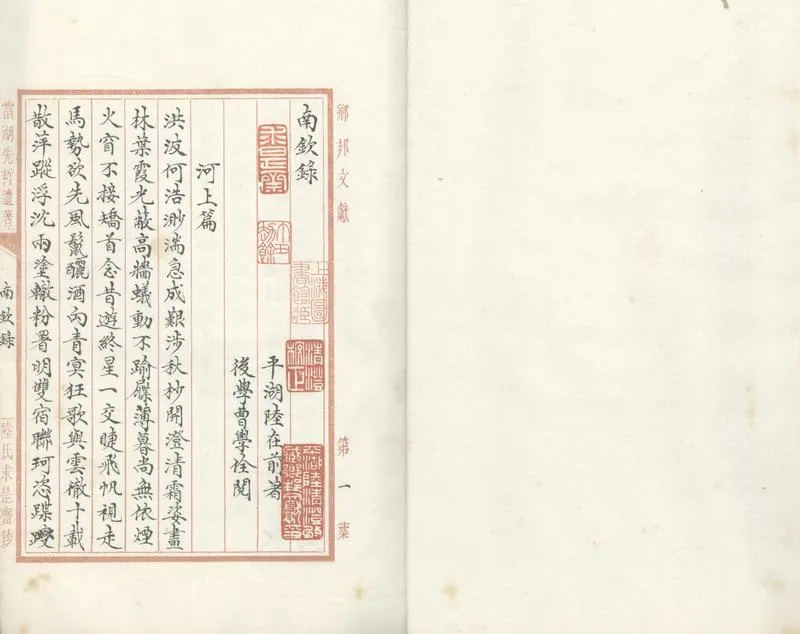 鄉邦文獻 第一葉
南欽錄
求是齋
上海圖書館藏
清澄校正
平湖陸在前著
後學曹學佺閱
河上篇
洪波何浩渺湍急成艱涉秋杪開澄清霜姿畫
林葉霞光蔽高牆蟻動不踰屧薄暮尚無依煙
火窅不接矯首念昔遊終星一交睫飛帆視走
馬勢欲先風鬣釃酒向青冥狂歌與雲徹十載
散萍蹤浮沈雨塗轍粉署明雙宿聯珂恣蹀躞
當湖先哲遺著
南欽錄
陸氏求是齋鈔